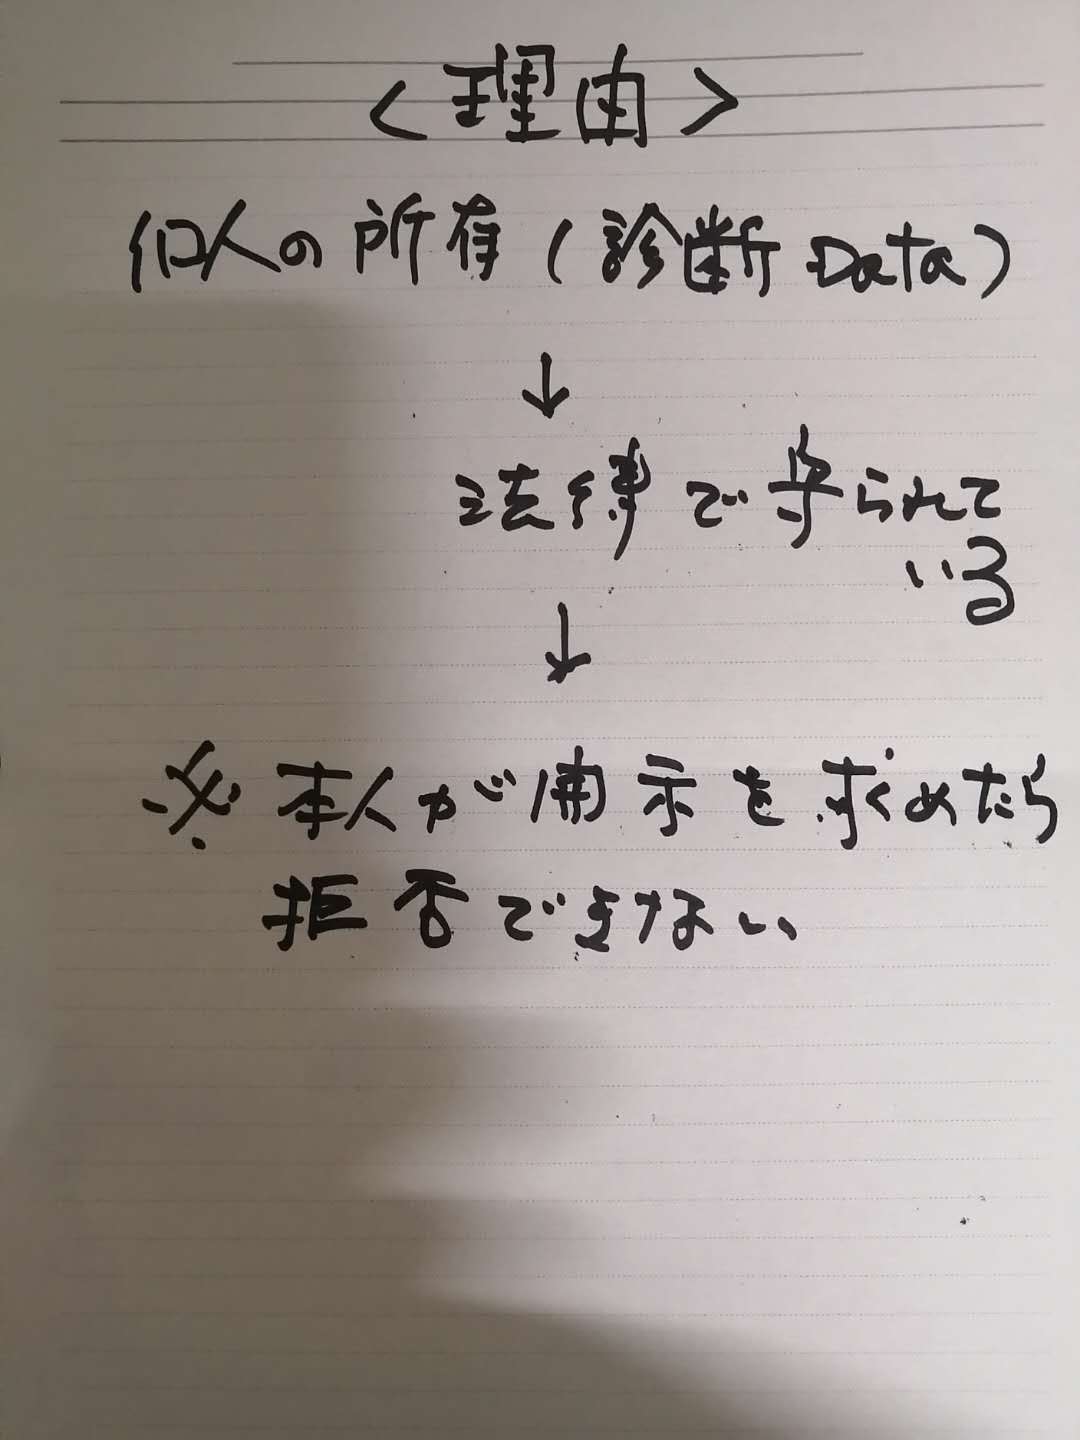 <理由>
個人の所有(診断Data)
↓
法律で守られて
いる
↓
※本人が開示を求めたら
拒否できない